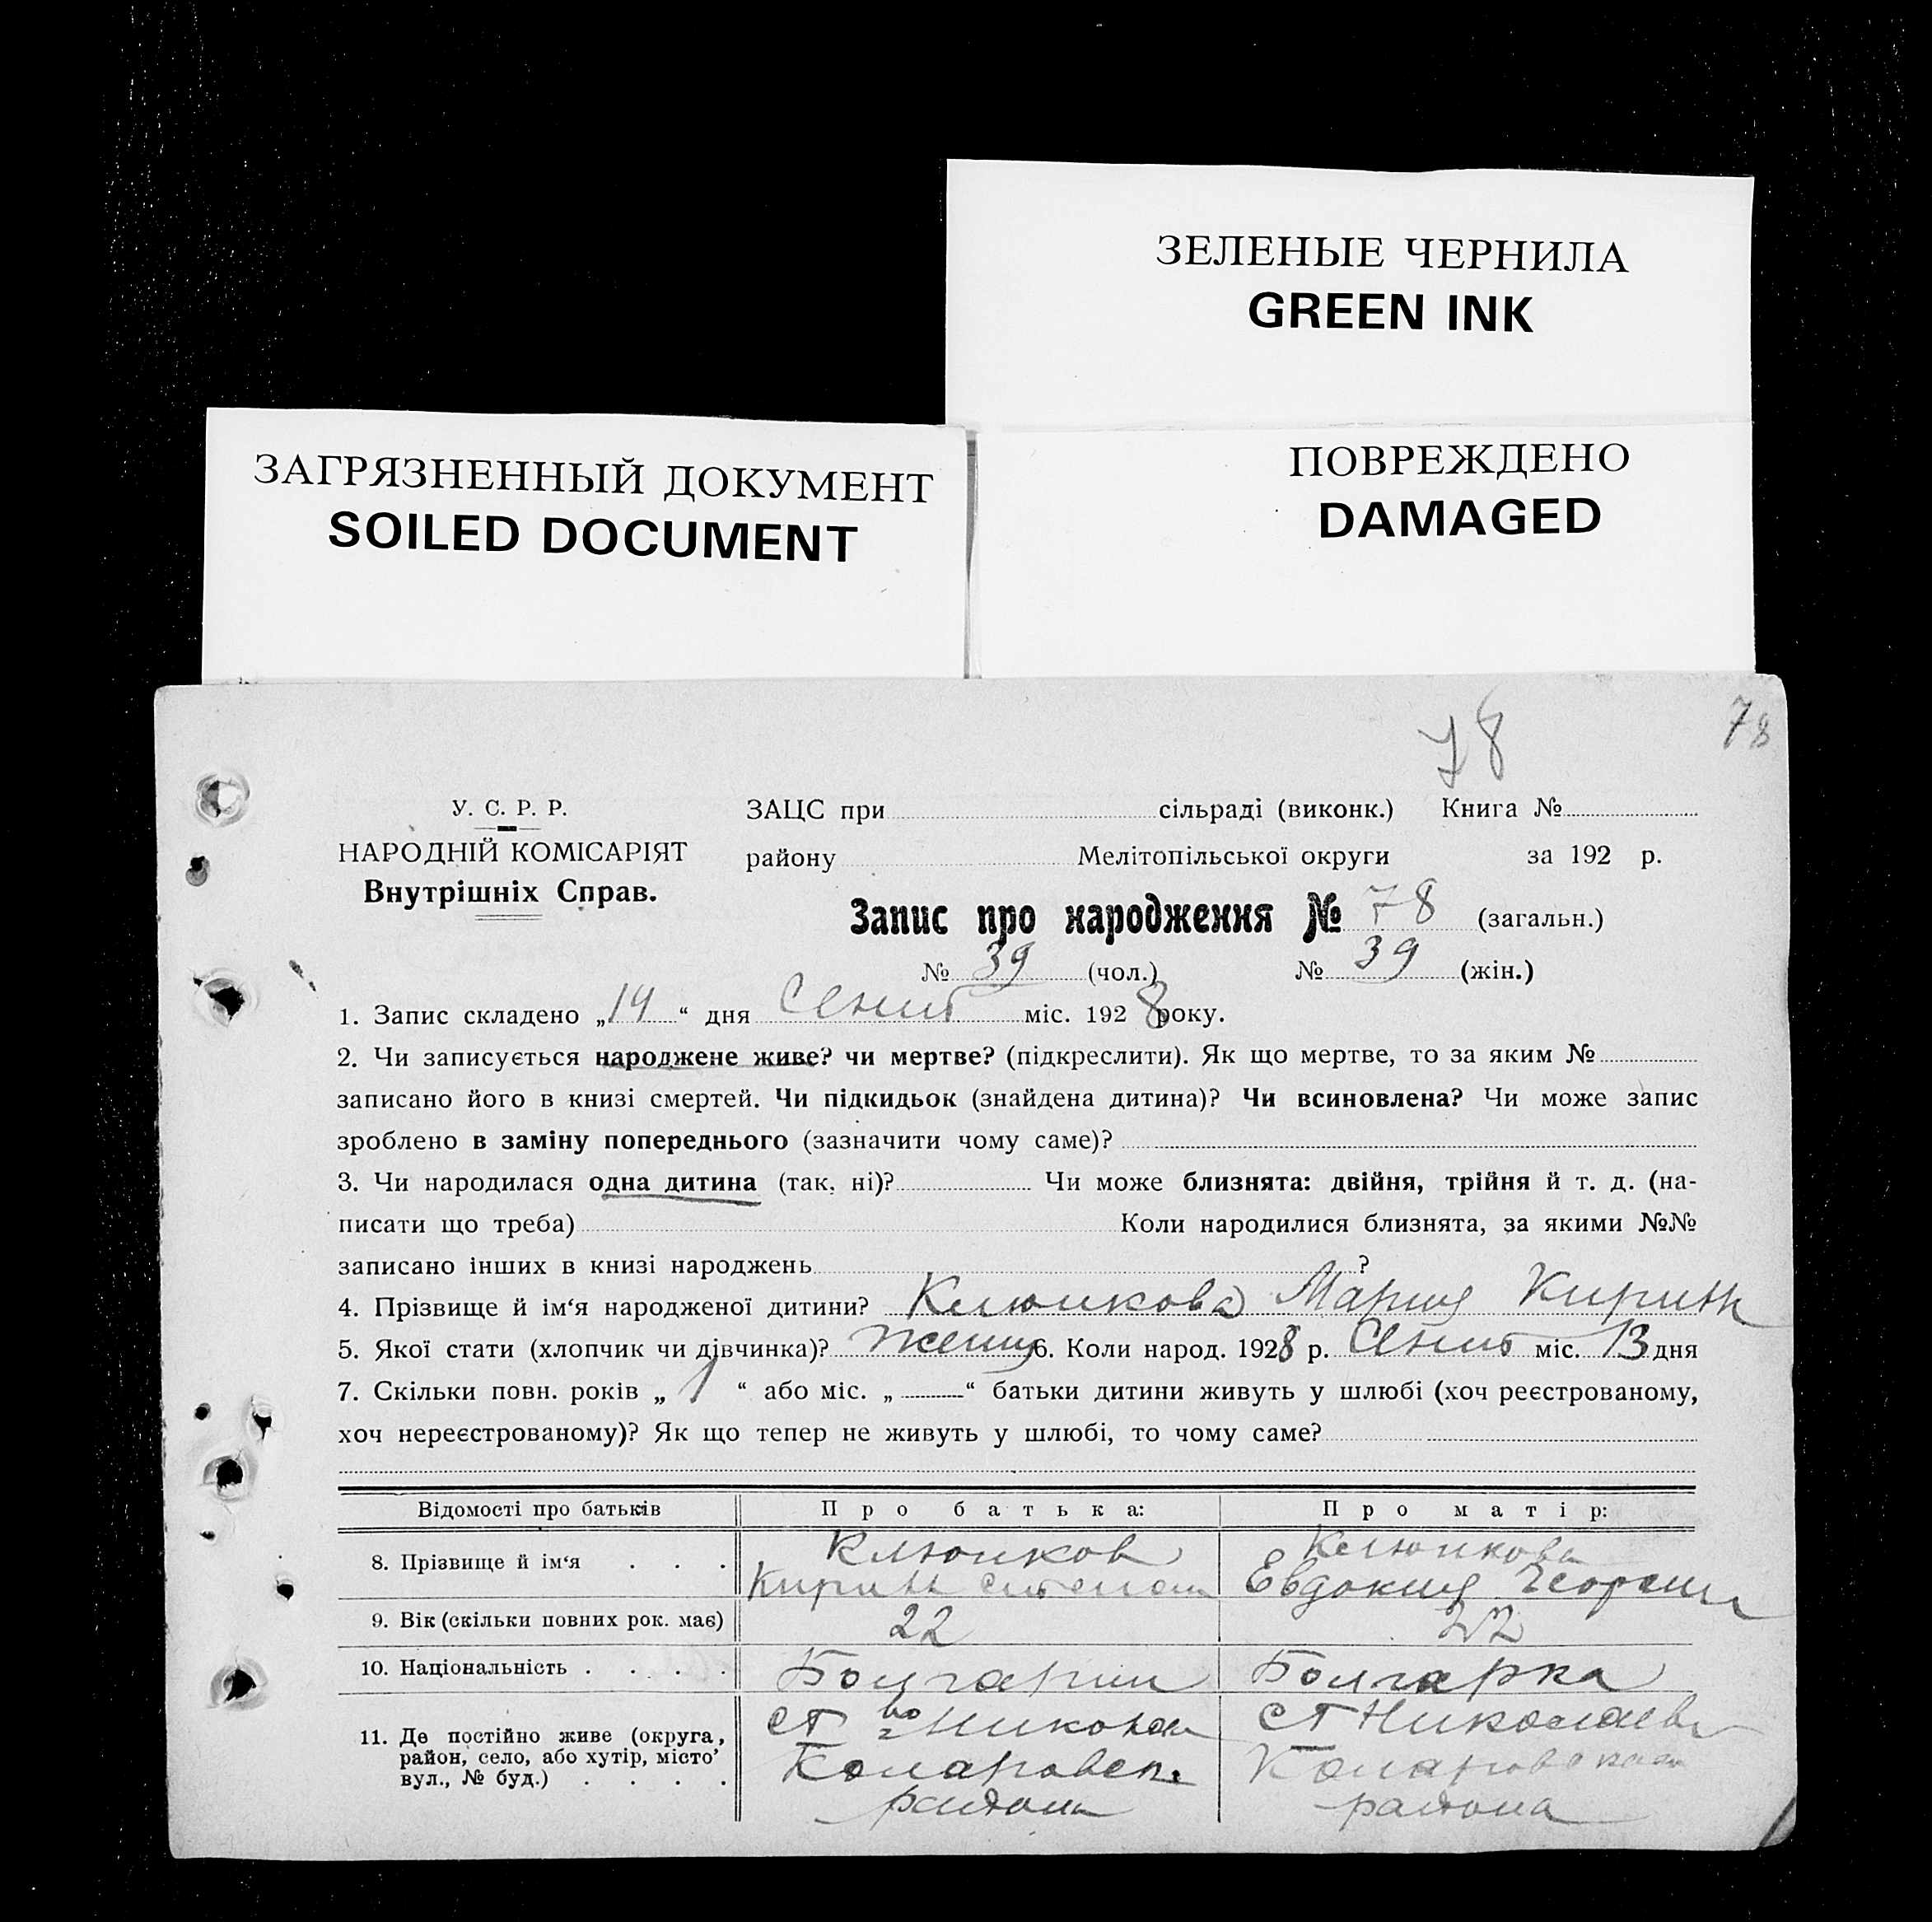 ЗЕЛЕНЫЕ ЧЕРНИЛА
GREEN INK
ЗАГРЯЗНЕННЫЙ ДОКУМЕНТ
SOILED DOCUMENT
ПОВРЕЖДЕНО
DAMAGED
78
78
У. С. Р. Р.
НАРОДНІЙ КОМІСАРІЯТ
Внутрішніх Справ.
ЗАЦС при сільраді (виконк.) Книга №
району Мелітопільської округи за 192 р.
Запис про народження № 78 (загальн.)
№ 39 (чол.) № 39 (жін.)
1. Запис складено „14“ дня міс. 1928 року.
2. Чи записується народжене живе? чи мертве? (підкреслити). Як що мертве, то за яким №
записано його в книзі смертей. Чи підкидьок (знайдена дитина)? Чи всиновлена? Чи може запис
зроблено в заміну попереднього (зазначити чому саме)?
3. Чи народилася одна дитина (так, ні)? Чи може близнята: двійня, трійня й т. д. (на-
писати що треба) Коли народилися близнята, за якими №№
записано інших в книзі народжень ?
4. Прізвище й ім‘я народженої дитини? Мария Кирил
5. Якої стати (хлопчик чи дівчинка)? 6. Коли народ. 1928 р. міс. 13 дня
7. Скільки повн. років „ 1 “ або міс. „ “ батьки дитини живуть у шлюбі (хоч реєстрованому,
хоч нереєстрованому)? Як що тепер не живуть у шлюбі, то чому саме?
Відомості про батьків Про батька: Про матір:
8. Прізвище й ім‘я . . .
Кирилл Евдокия Георги
9. Вік (скільки повних рок. має) 22 22
10. Національність . . . . . Болгарин Болгарка
11. Де постійно живе (округа,
район, село, або хутір, місто’
вул., № буд.) . . . .
Коларовск Коларовская
района района